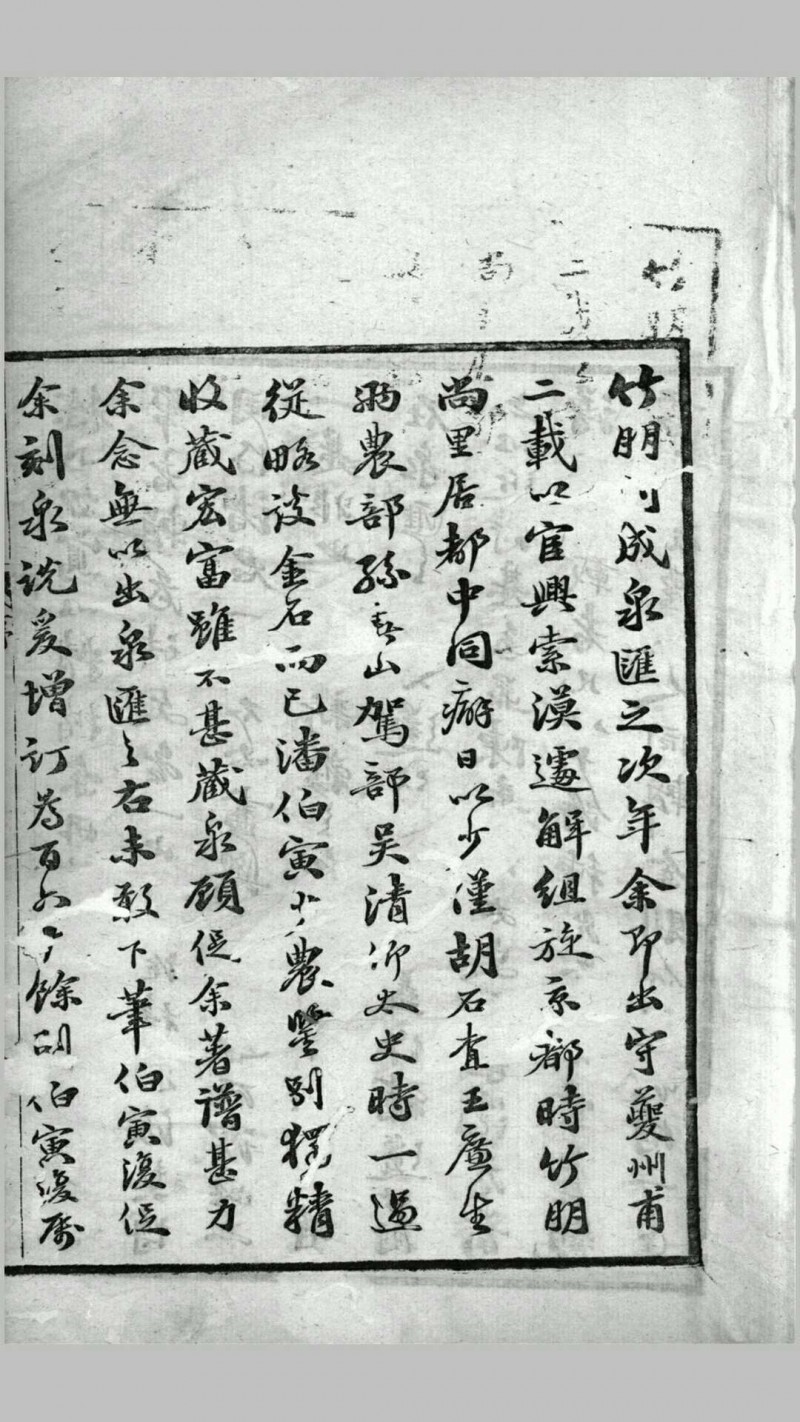 竹朋刊成泉匯之次年余即出守夔州甫
二載以宦興索漠遽解組旋京都時竹朋
尚里居都中同癖日以少僅胡石查王廉生
兩農部孫春山駕部吳清卿太史時一過
從略談金石而已潘伯寅少農鑒別獨精
收藏宏富雖不甚藏泉顧促余著譜甚力
余念無以出泉匯之右未敢下筆伯寅復促
余刻泉說爰增訂為百餘則伯寅復屬